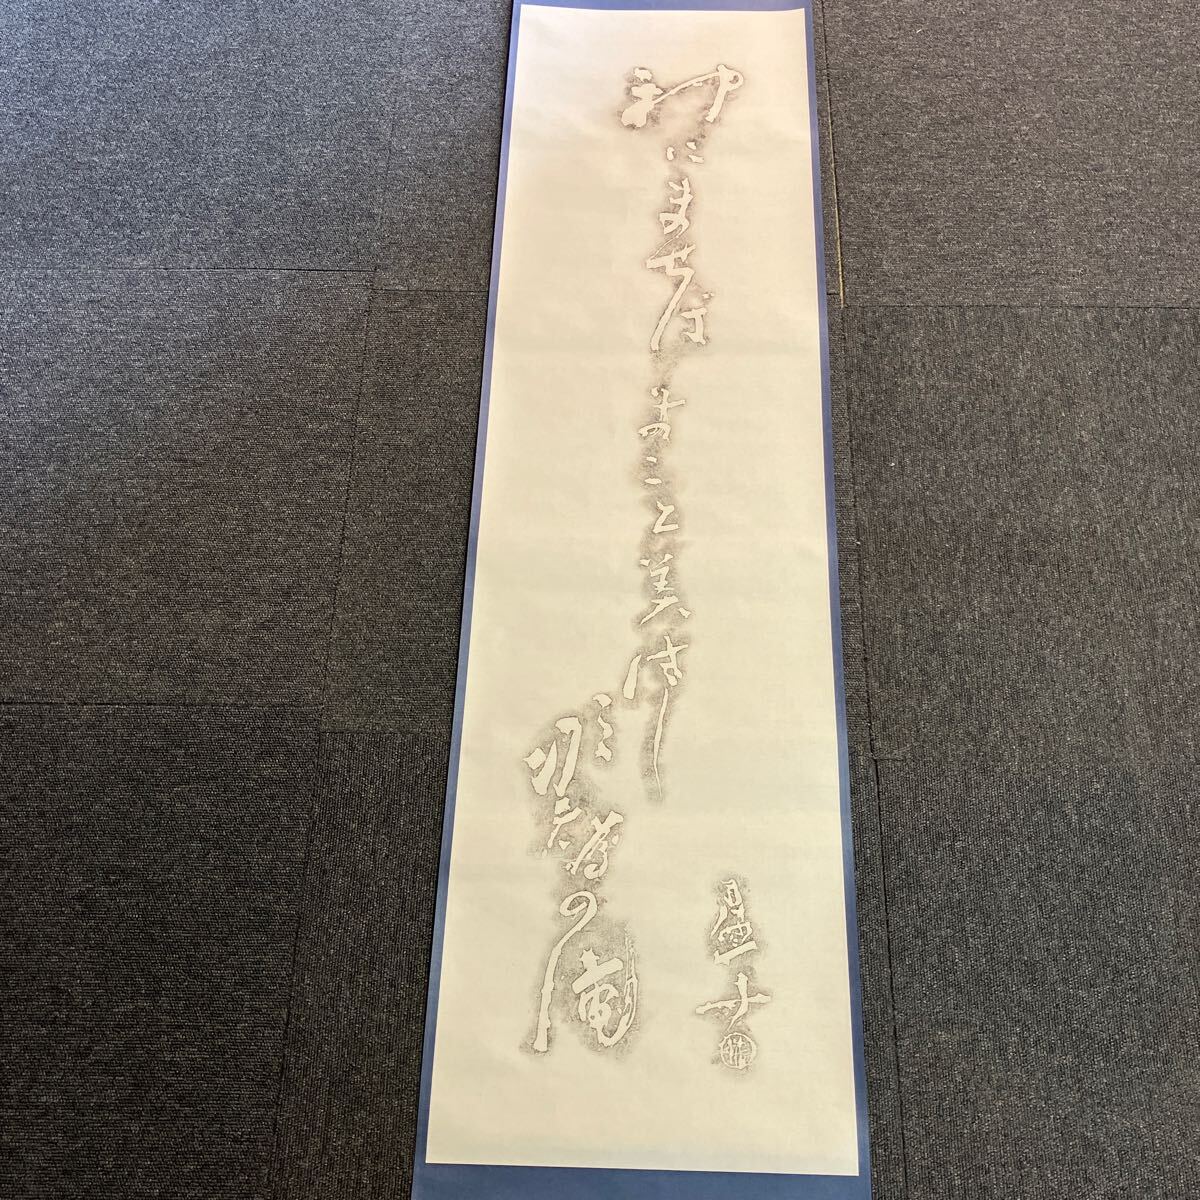 神にませばまこと美はし
那智の瀧
虚子